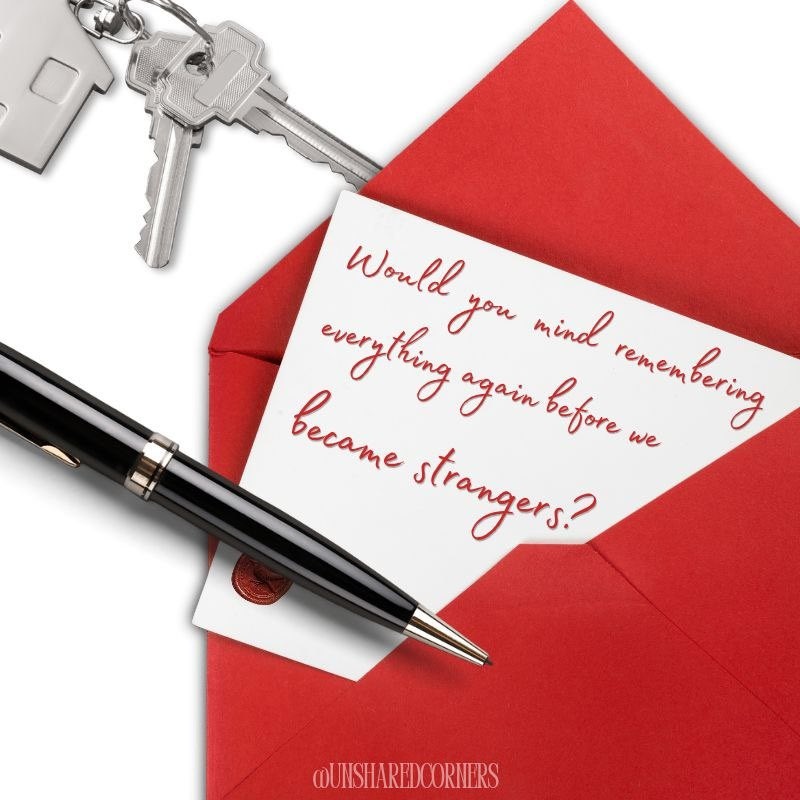 Would you mind remembering
everything again before we
became strangers?
@UNSHAREDCORNERS